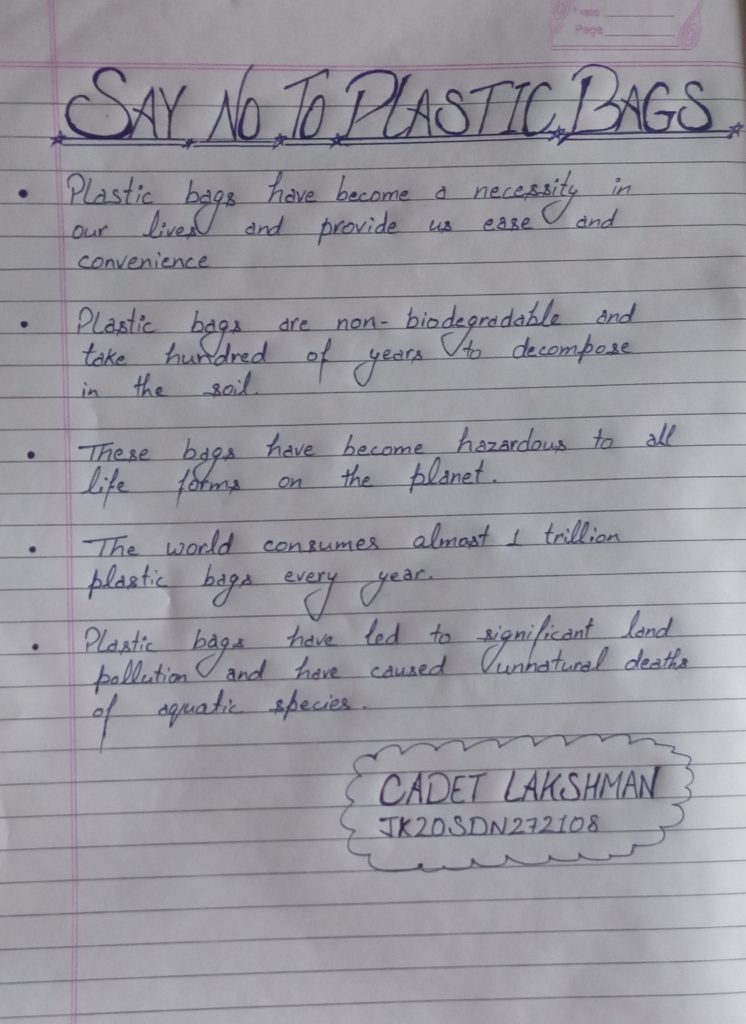 Date
Page
SAY NO TO PLASTIC BAGS
• Plastic bags have become a necessity in
our lives and provide us ease and
convenience
• Plastic bags are non-biodegradable and
take hundred of years to decompose
in the soil.
• These bags have become hazardous to all
life forms on the planet.
• The world consumes almost 1 trillion
plastic bags every year.
• Plastic bags have led to significant land
pollution and have caused unnatural deaths
of aquatic species.
CADET LAKSHMAN
JK20SDN272108